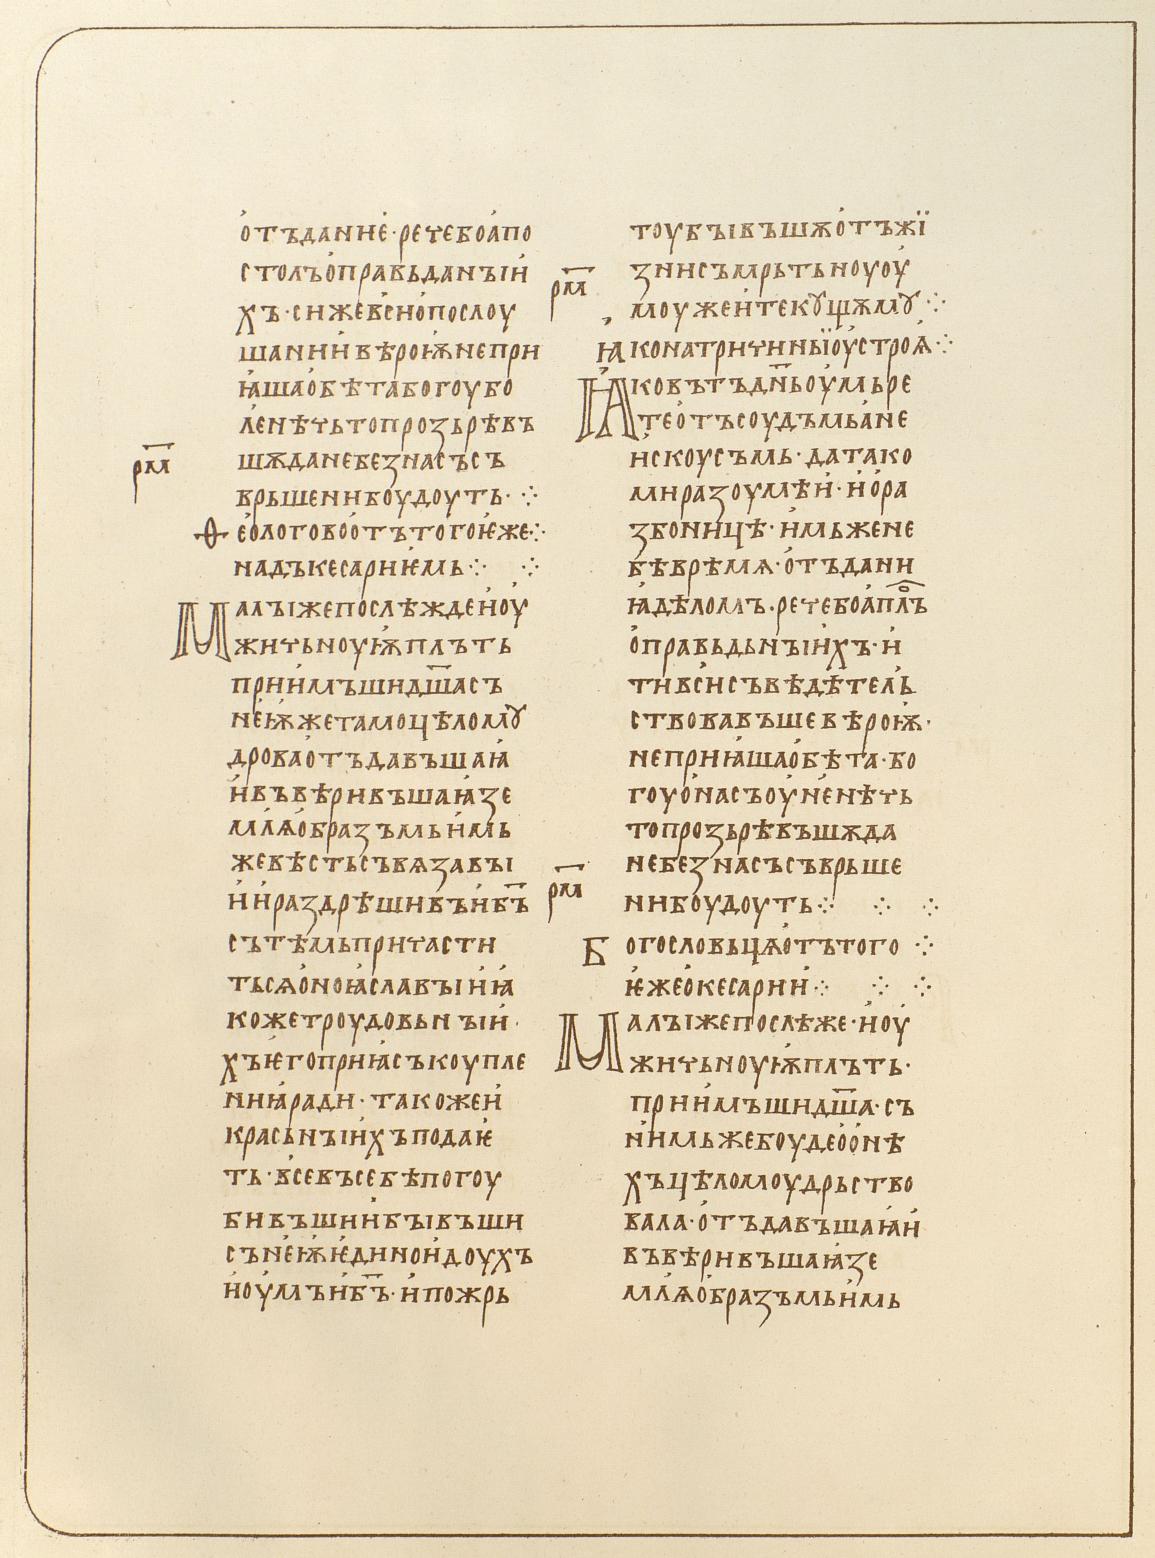 отъдание·речебоапо
столъоправьданꙑи
хъ·сижевсипослоу
шаниивѣроѭнепри
ꙗшаобѣтабогоубо
ленѣчьтопрозьрѣвъ
рм҃
шѫданебезнасъсъ
врьшенибоудоуть·⁘
Ѳеологовоотътогоѥже⁘
надъкесариѥмь⁘ ⁘
Малꙑжепослѣждеиоу
жичьноуѭплъть
приимъшидш҃асъ
неѭжетамоцѣломꙋ
дроваотъдавъшаꙗ
ивъвѣривъшаꙗзе
млѧобразъмьимь
жевѣстьсъвѧзавꙑ
иираздрѣшивъиб҃ъ
сътѣмьпричасти
тьсѧоноꙗславꙑиꙗ
кожетроудовьнꙑи·
хъѥгоприꙗсъкоупле
ниꙗради·такожеи
красьнꙑихъподаѥ
ть·всевъсебѣпогоу
бивъшиибꙑвъши
сънеѭѥдиноидоухъ
иоумъиб҃ъ·ипожрь
тоубꙑвъшѫотъжї
знисъмрьтьноуоу
рм҃
моужеитекꙋщѧмꙋ⁘
ꙗконатричинꙑїоустроꙗ⁘
Ꙗковътъдн҃ьоумьре
теотъсоудъмьане
искоусъмь·датако
миразоумѣи·иора
збоиицѣ·имьжене
бѣврѣмѧ·отъдани
ꙗдѣломъ·речебоапл҃ъ
оправьдьнꙑихъ·и
тивсисъвѣдѣтель
ствовавъшевѣроѭ·
неприꙗшаобѣта·бо
гоуонасъоуненѣчь
топрозьрѣвъшѫда
небезнасъсъврьше
рм҃
нибоудоуть⁘ ⁘ ⁘
Богословьцѧотътого ⁘
ѥжеокесарии⁘ ⁘ ⁘
Малꙑжепослѣже·иоу
жичьноуѭплъть·
приимъшидш҃а·съ
нимьжебоудеоонѣ
хъцѣломоудрьство
вала·отъдавъшаꙗи
въвѣривъшаꙗзе
млѧобразъмьимь